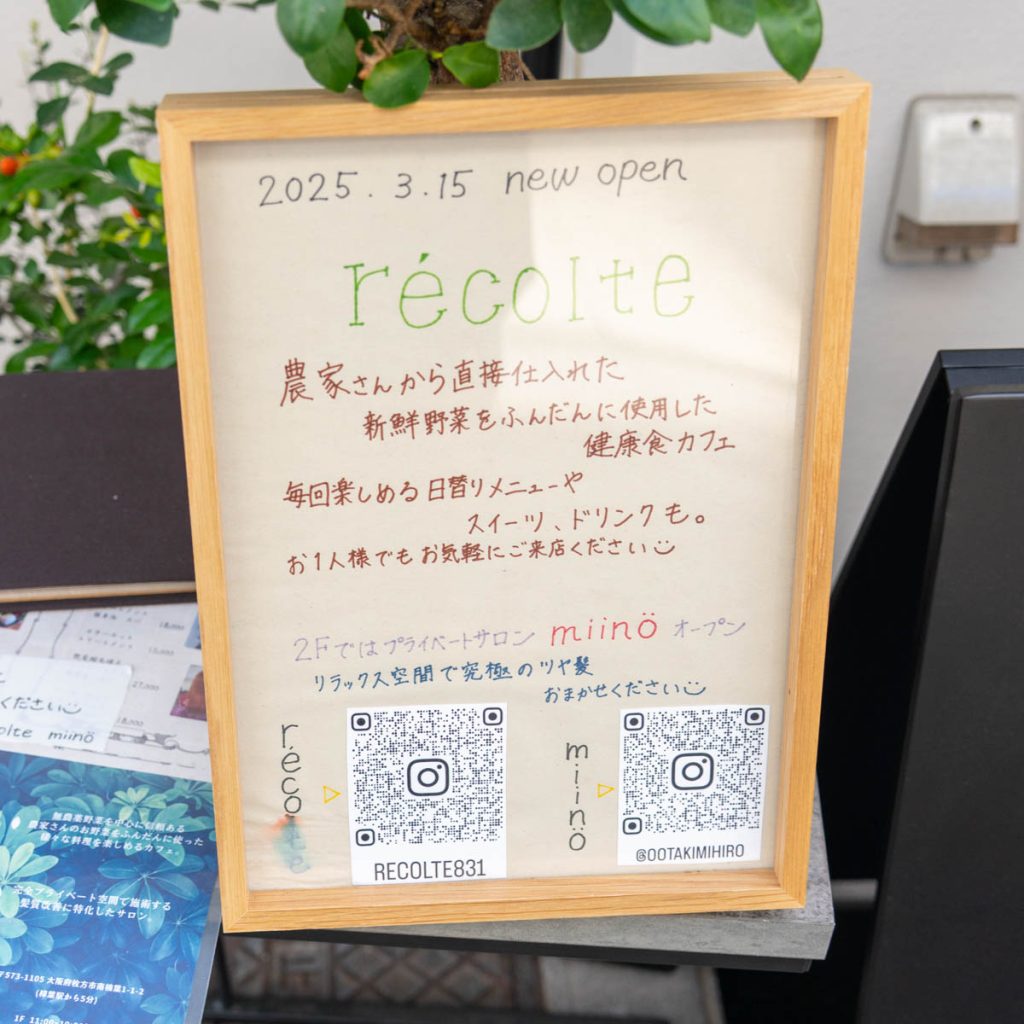 2025.3.15 new open
récolte
農家さんから直接仕入れた
新鮮野菜をふんだんに使用した
健康食カフェ
毎回楽しめる日替りメニューや
スイーツ、ドリンクも。
お1人様でもお気軽にご来店ください
2Fではプライベートサロン miinö オープン
リラックス空間で究極のツヤ髪
おまかせください
réco
RECOLTE831
miinö
@OOTAKIMIHIRO
18,000
27,000
18,000
ください
colte miinö
無農薬野菜を中心に信頼ある
農家さんのお野菜をふんだんに使った
様々な料理を楽しめるカフェ。
完全プライベート空間で施術する
髪質改善に特化したサロン。
〒573-1105 大阪府枚方市南楠葉1-1-2
(樟葉駅から5分)
1F 11:00-